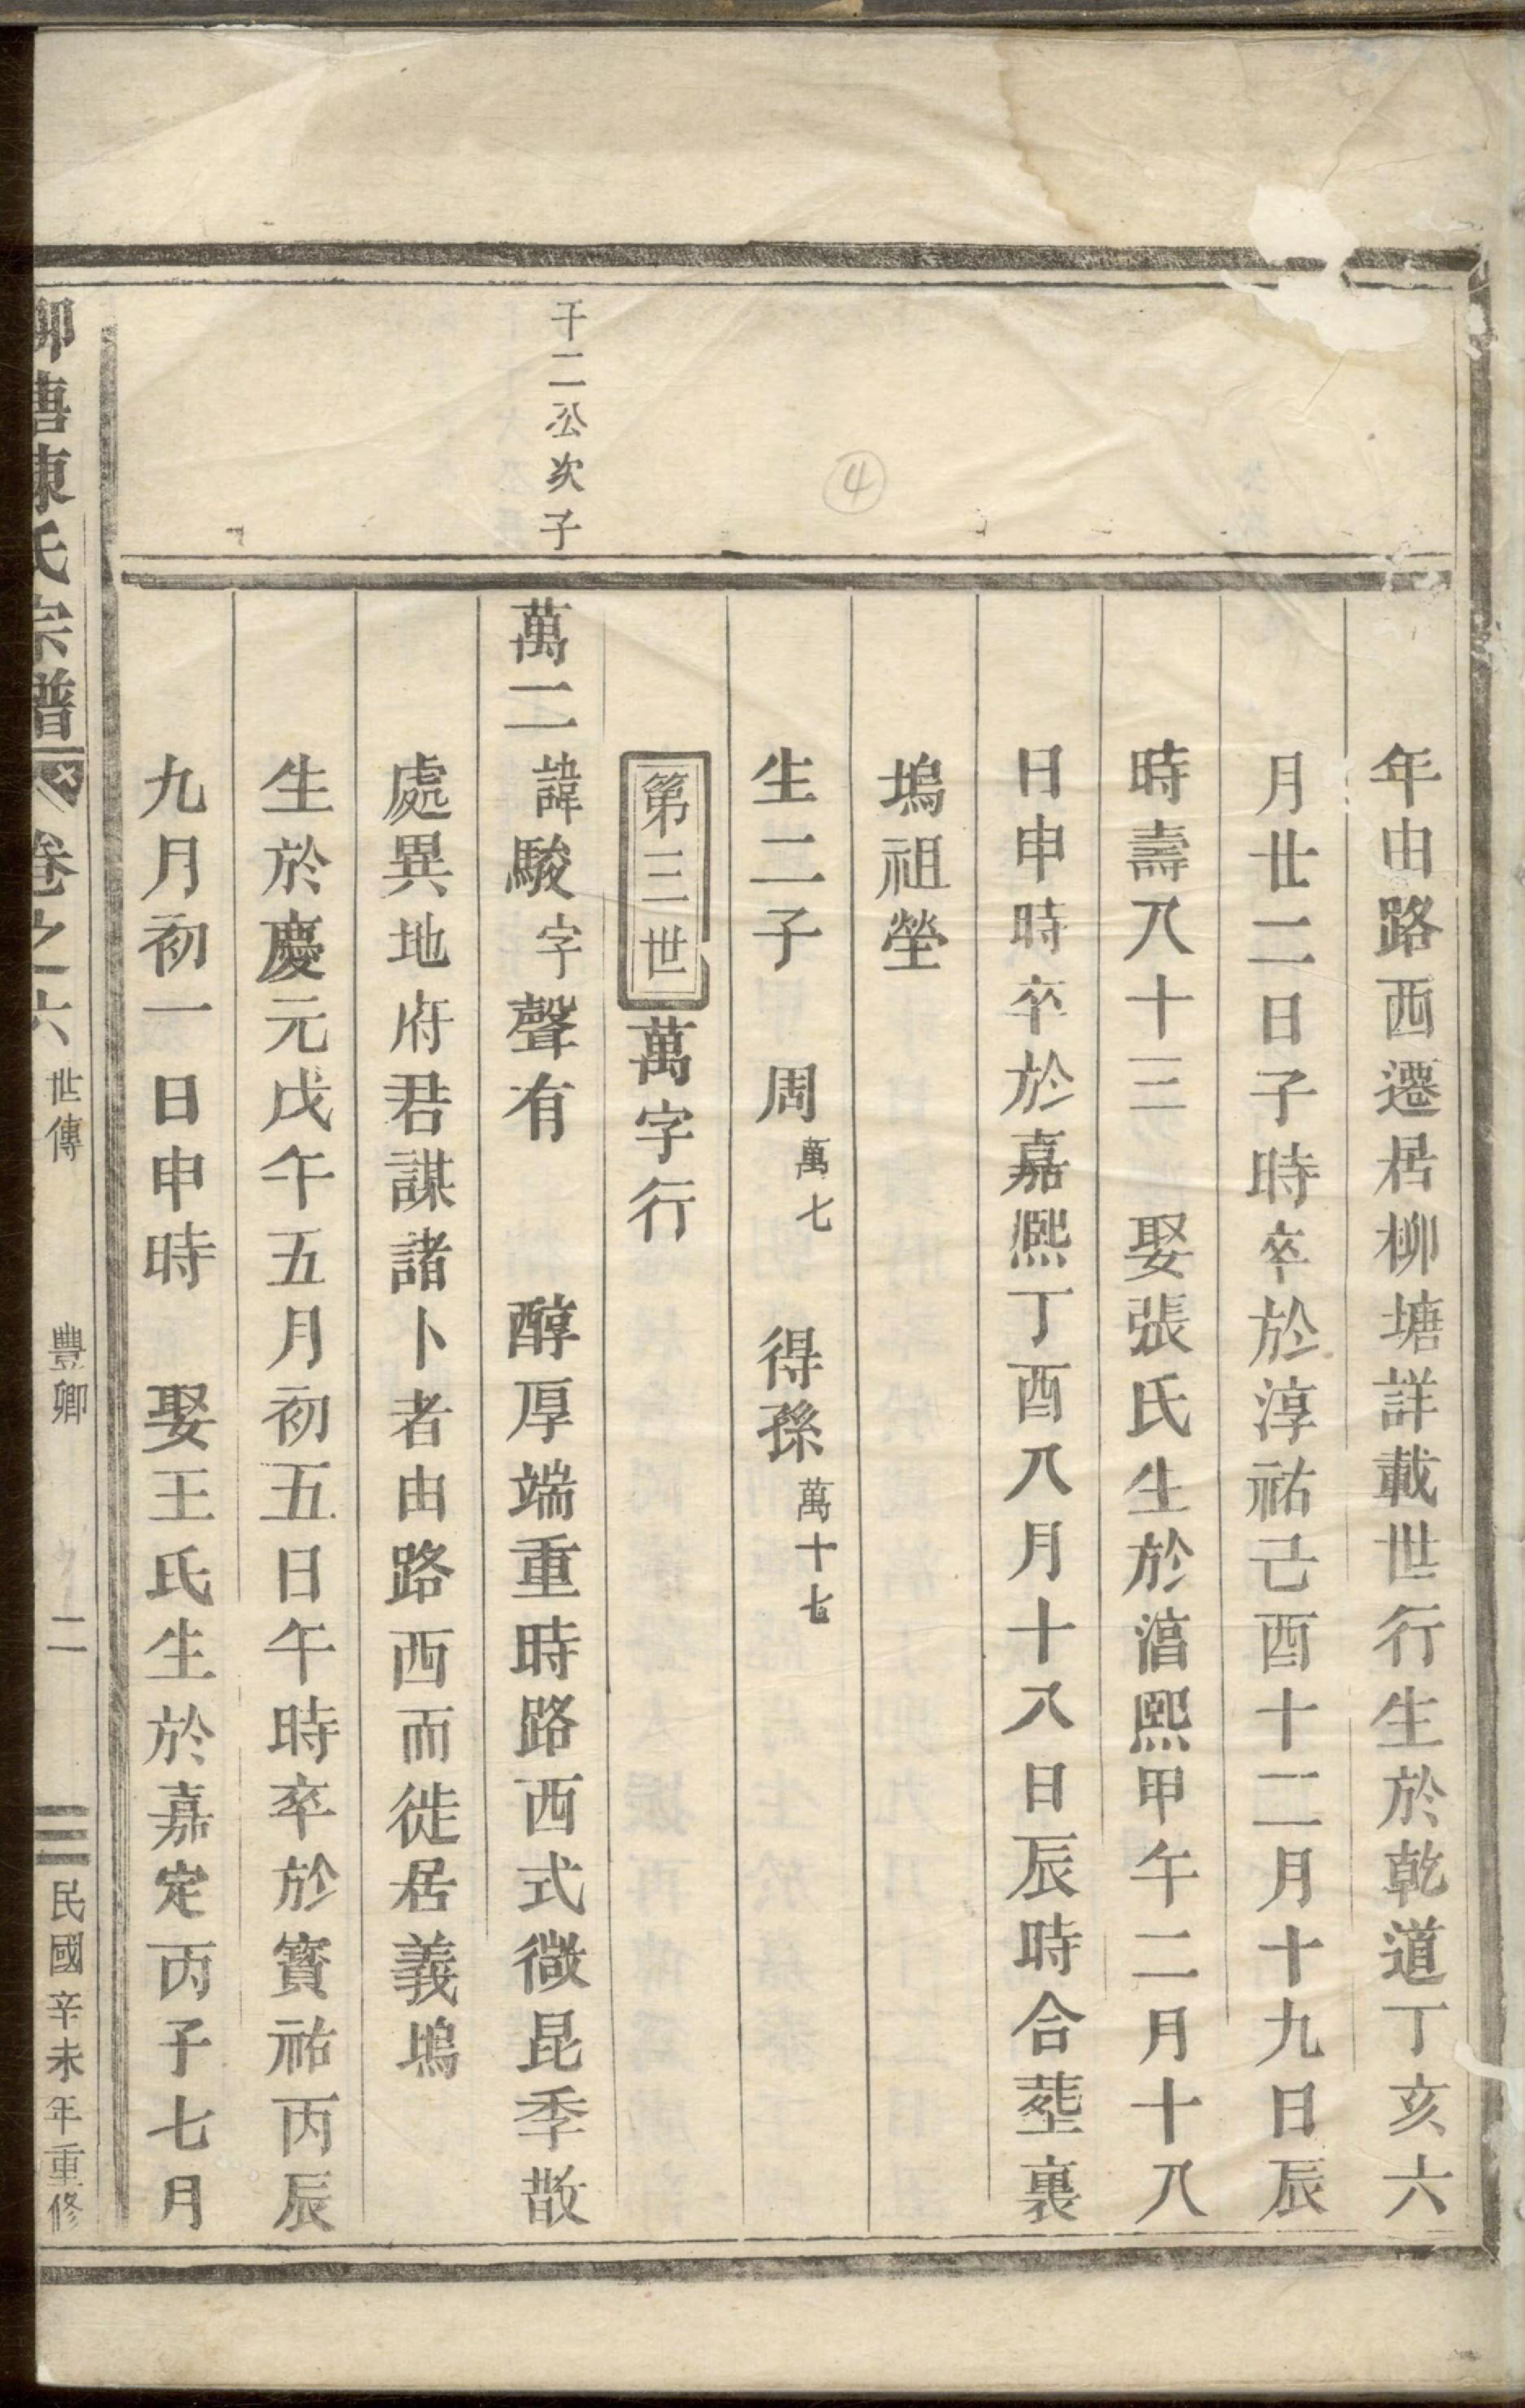 年由路西遷居柳塘詳載世行生於乾道丁亥六
月廿二日子時卒於淳祐己酉十二月十九日辰
時壽八十三 娶張氏生於湻熙甲午二月十八
日申時卒於嘉熈丁酉八月十八日辰時合塟裏
塢祖塋
生二子 周萬七 得孫萬十七
第三世 萬字行
千二公次子
萬二諱駿字聲有 醇厚端重時路西式微昆季散
處異地府君謀諸卜者由路西而徙居義塢
生於慶元戊午五月初五日午時卒於寳祐丙辰
九月初一日申時 娶王氏生於嘉定丙子七月
柳塘陳氏宗譜 卷之六 世傳 豐卿 二 民國辛未年重修
④